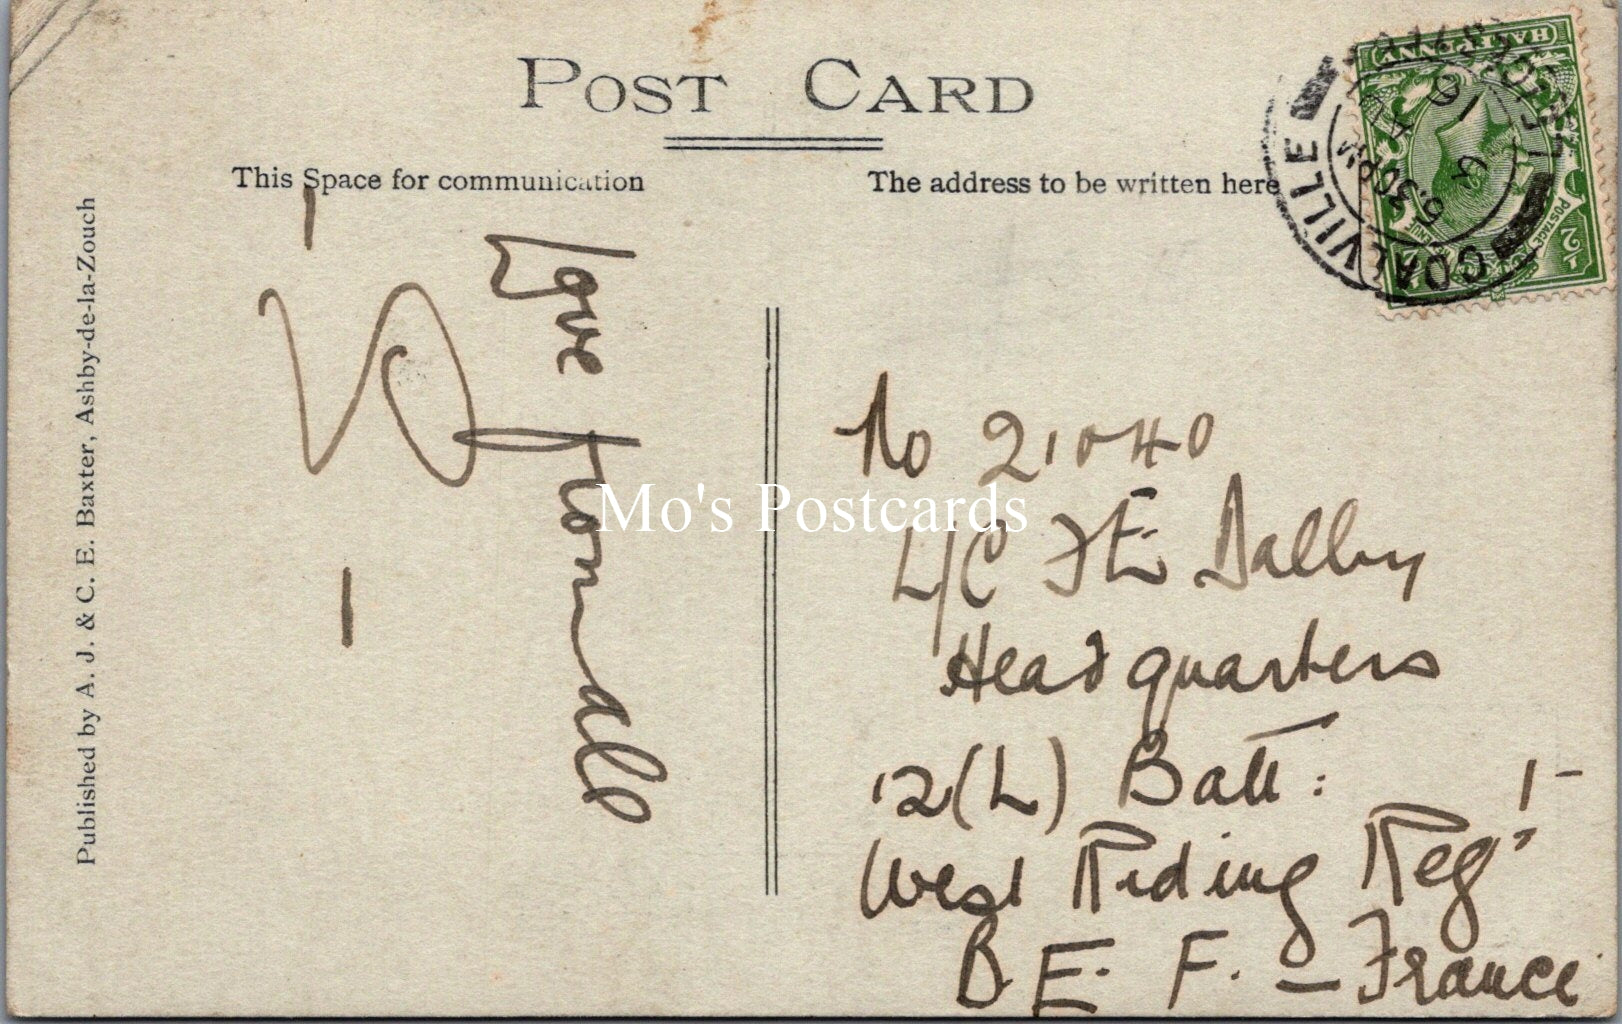 POST CARD
This Space for communication
The address to be written here
Published by A. J. & C. E. Baxter, Ashby-de-la-Zouch
Love from all
No 21040
L/C F E Dalby
Headquarters
12(L) Batt:
West Riding Regt
B. E. F. - France
COALVILLE
6.30 PM
HALFPENNY
POSTAGE
1/2
Mo's Postcards